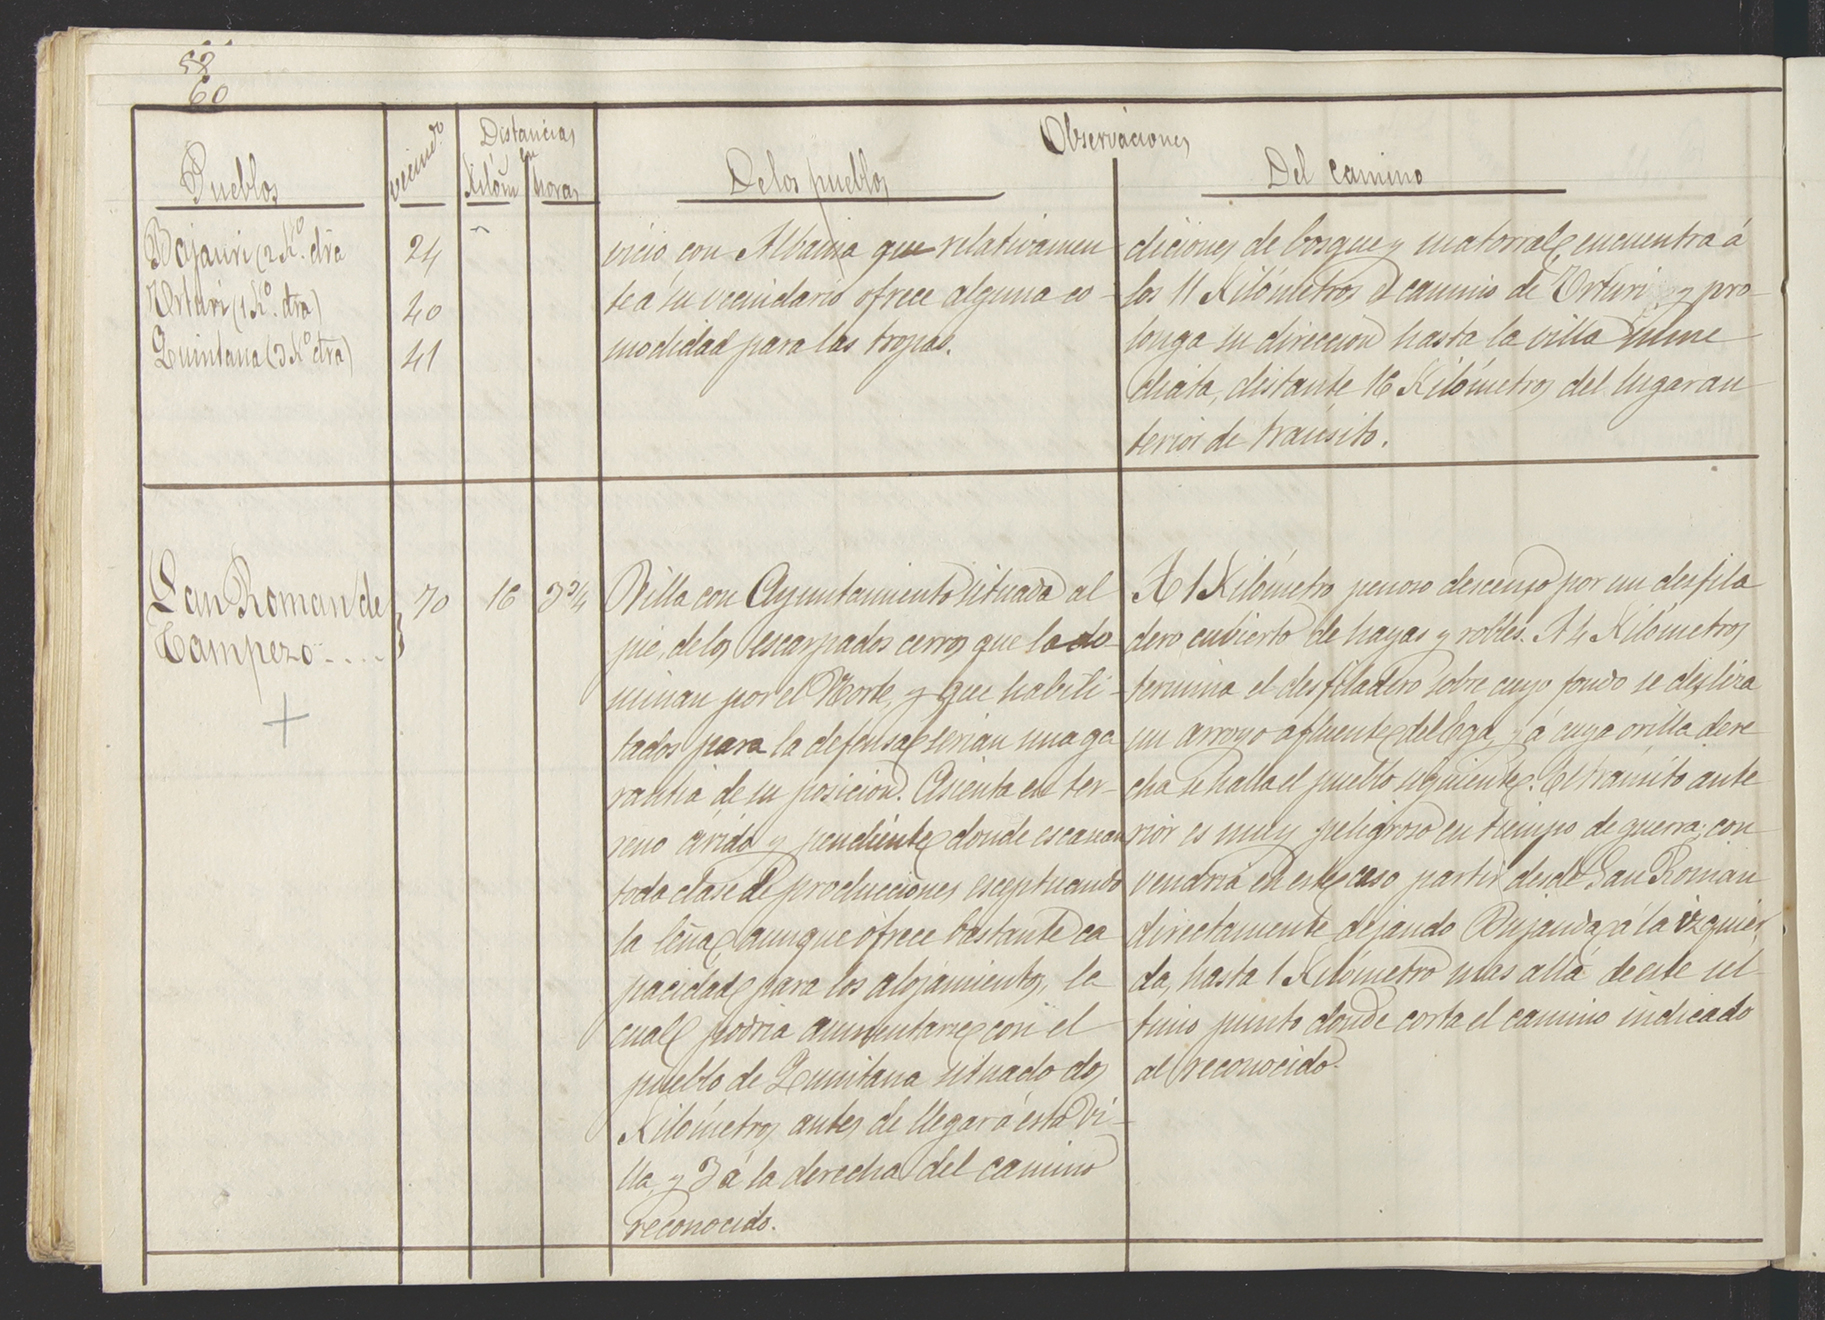 58
60
Pueblos
vecind.º
Distancias en
Kilóm
horas
Observaciones
De los pueblos
Del camino
Bajauri (2 K.º dra
24
Urturi (1 K.º dra)
40
Quintana (3 K.º dra)
41
vicio con Albaina que relativamen
te á su vecindario ofrece alguna co-
modidad para las tropas.
diciones de bosque y matorral, encuentra á
los 11 Kilómetros el camino de Urturi y pro-
longa su direccion hasta la villa inme
diata, distante 16 Kilómetros del lugar an
terior de tránsito.
San Roman de
Campezo ....
70
16
3 3/4
Villa con Ayuntamiento situada al
pie de los escarpados cerros que la do-
minan por el Norte, y que habili-
tados para la defensa serian una ga
rantia de su posicion. Asienta en ter-
reno árido y pendiente donde escasean
toda clase de producciones esceptuando
la leña, aunque ofrece bastante ca
pacidad para los alojamientos, la
cual podria aumentarse con el
pueblo de Quintana situado dos
Kilómetros antes de llegar á esta Vi-
lla y 3 á la derecha del camino
reconocido.
A 1 Kilómetro penoso descenso por un desfila
dero cubierto de hayas y robles. A 4 Kilómetros
termina el desfiladero sobre cuyo fondo se desliza
un arroyo afluente del Ega, y á cuya orilla dere
cha se halla el pueblo siguiente. El tránsito ante
rior es muy peligroso en tiempo de guerra; con
vendria en este caso partir desde San Roman
directamente, dejando Bujanda á la izquier
da, hasta 1 Kilómetro mas allá de este úl-
timo punto donde corta el camino indicado
al reconocido.